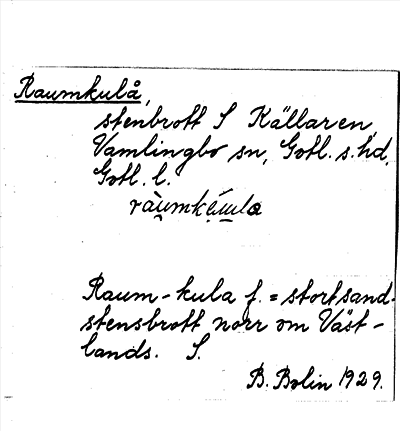 Raumkulå,
stenbrott S Källaren,
Vamlingbo sn, Gotl. s. hd,
Gotl. l.
ràu̯mkéu̯la
Raum-kula f. = stort sand-
stensbrott norr om Väst-
lands. S.
B. Bolin 1929.